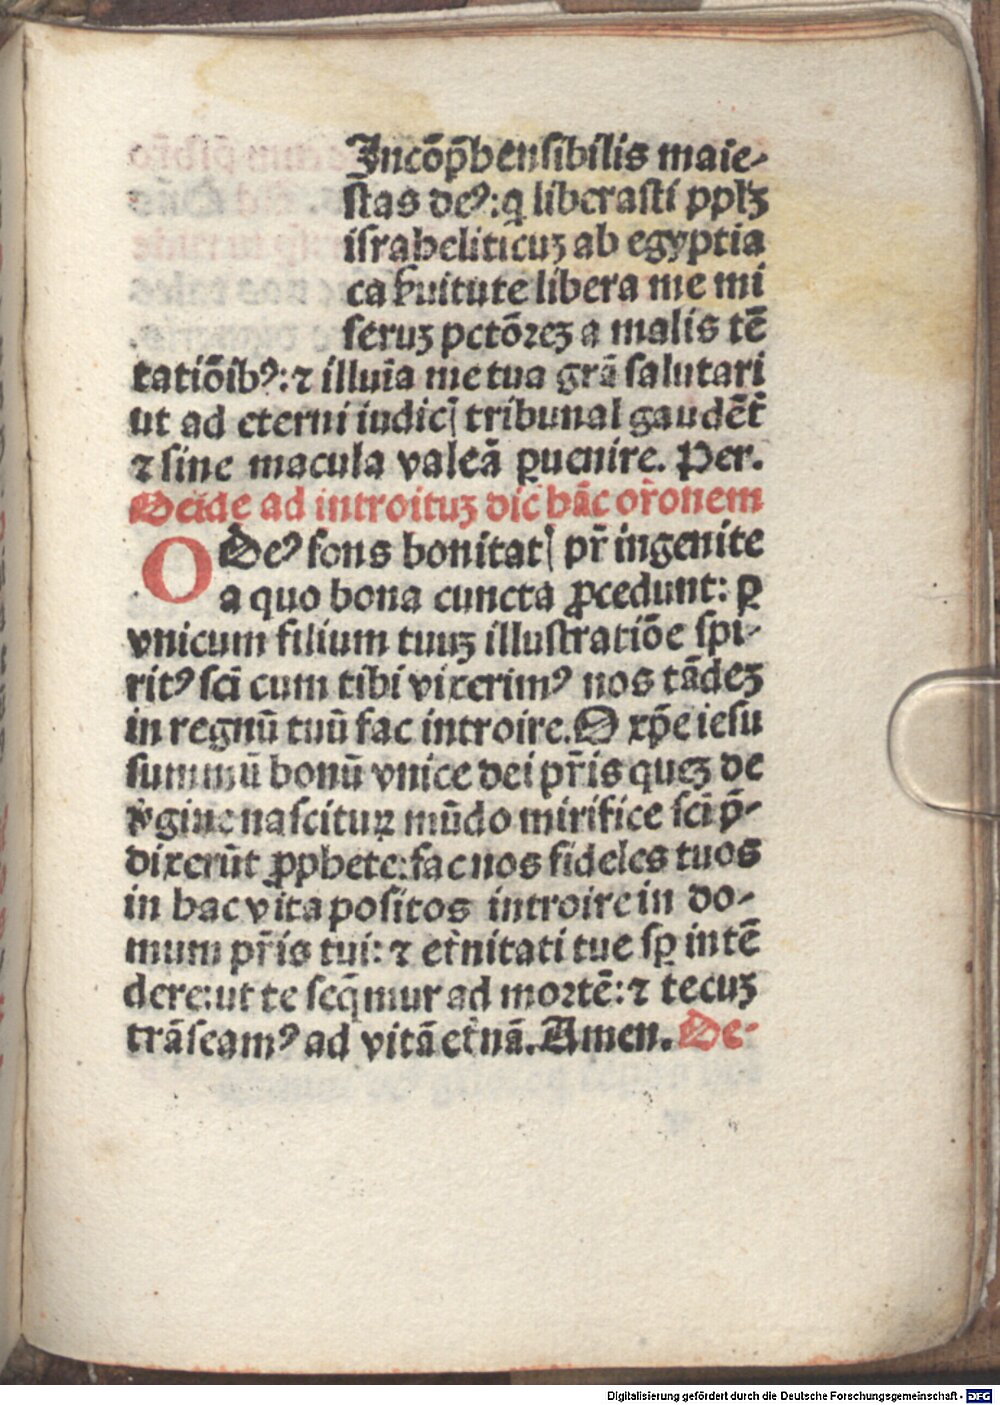 Incōp̄hensibilis maie-
stas deꝰ: q liberasti pplꝫ
israheliticuꝫ ab egyptia
ca ẜuitute libera me mi
seruꝫ pctōꝛeꝫ a malis tē
tatiōibꝰ: ⁊ illuīa me tua grā salutari
ut ad eterni iudicꝭ tribunal gaudēt̄
⁊ sine macula valeā ꝑuenire. Per.
Deīde ad introituꝫ dic̄ hāc or̄onem
O Deꝰ fons bonitatꝭ pr̄ ingenite
a quo bona cuncta ꝓcedunt: ꝑ
vnicum filium tuuꝫ illustratiōe spi-
ritꝰ sc̄i cum tibi vixerimꝰ nos tādeꝫ
in regnū tuū fac introire. O xp̄e iesu
summū bonū vnice dei pr̄is queꝫ de
v̓gine nascituꝝ mūdo mirifice sc̄i p̄-
dixerūt ꝓphete: fac nos fideles tuos
in hac vita positos introire in do-
mum pr̄is tui: ⁊ et̓nitati tue sꝑ intē
dere: ut te seq̄mur ad moꝛtē: ⁊ tecuꝫ
trāseamꝰ ad vitā et̓nā. Amen. De-
Digitalisierung gefördert durch die Deutsche Forschungsgemeinschaft - DFG